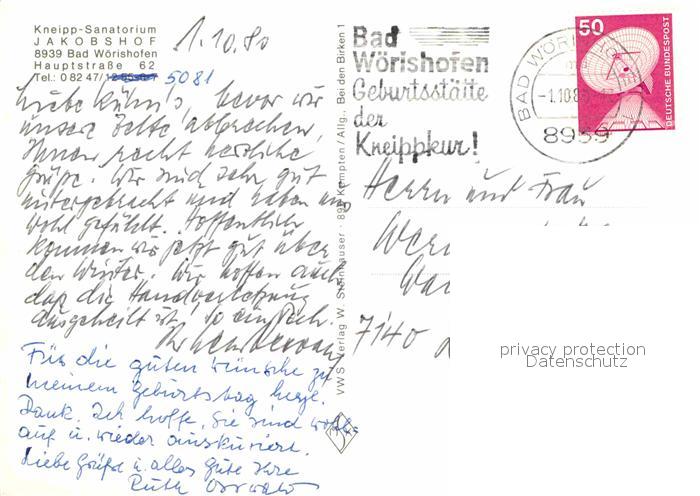 Kneipp-Sanatorium
JAKOBSHOF
8939 Bad Wörishofen
Hauptstraße 62
Tel.: 0 82 47/
5081
1.10.80
Liebe Kühn's, bevor wir
unsere Zelte abbrechen,
Ihnen recht herzliche
Grüße. Wir sind sehr gut
untergebracht und haben uns
wohl gefühlt. Hoffentlich
kommen wir jetzt gut über
den Winter. Wir hoffen auch
daß die Handverletzung
ausgeheilt ist, so ein Pech.
Für die guten Wünsche zu
meinem Geburtstag herzl.
Dank. Ich hoffe, Sie sind wohl-
auf u. wieder auskuriert.
Liebe Grüße u. alles Gute Ihre
Ruth
VWS Verlag W. Steinhauser · 896 Kempten / Allg., Bei den Birken 1
Bad
Wörishofen
Geburtsstätte
der
Kneippkur!
BAD WÖRISHOFEN
-1.10.80
8939
50
DEUTSCHE BUNDESPOST
Herrn und Frau
7140
privacy protection
Datenschutz